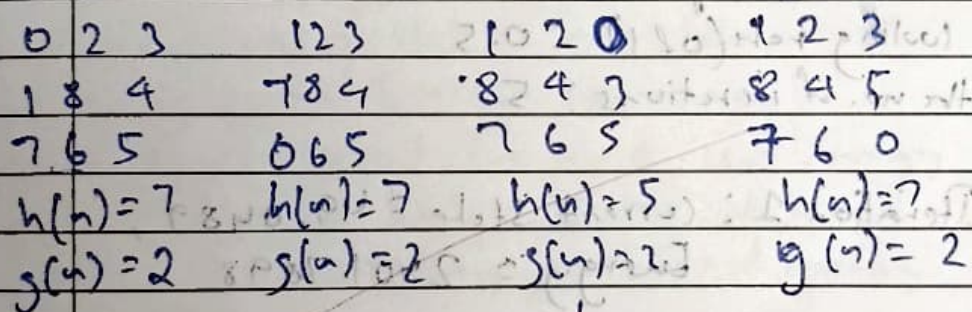 0 2 3 1 2 3 1 2 0 1 2 3
1 8 4 7 8 4 8 4 3 8 4 5
7 6 5 0 6 5 7 6 5 7 6 0
h(n) = 7 h(n) = 7 h(n) = 5 h(n) = 7
g(n) = 2 g(n) = 2 g(n) = 2 g(n) = 2